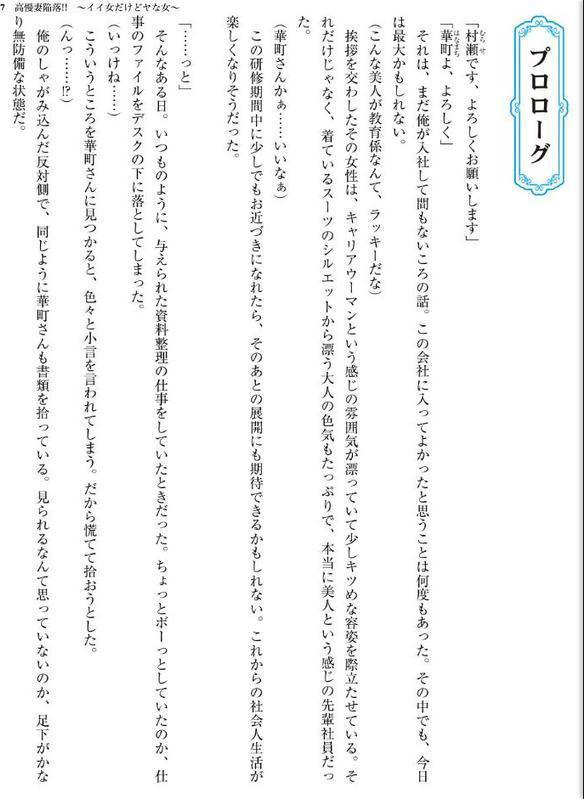 7　高慢妻陥落!!　～イイ女だけどヤな女～
プロローグ
「村瀬です、よろしくお願いします」
「華町よ、よろしく」
　それは、まだ俺が入社して間もないころの話。この会社に入ってよかったと思うことは何度もあった。その中でも、今日
は最大かもしれない。
（こんな美人が教育係なんて、ラッキーだな）
　挨拶を交わしたその女性は、キャリアウーマンという感じの雰囲気が漂っていて少しキツめな容姿を際立たせている。そ
れだけじゃなく、着ているスーツのシルエットから漂う大人の色気もたっぷりで、本当に美人という感じの先輩社員だっ
た。
（華町さんかぁ……いいなぁ）
　この研修期間中に少しでもお近づきになれたら、そのあとの展開にも期待できるかもしれない。これからの社会人生活が
楽しくなりそうだった。
「……っと」
　そんなある日。いつものように、与えられた資料整理の仕事をしていたときだった。ちょっとボーっとしていたのか、仕
事のファイルをデスクの下に落としてしまった。
（いっけね……）
　こういうところを華町さんに見つかると、色々と小言を言われてしまう。だから慌てて拾おうとした。
（んっ……!?）
　俺のしゃがみ込んだ反対側で、同じように華町さんも書類を拾っている。見られるなんて思っていないのか、足下がかな
り無防備な状態だ。